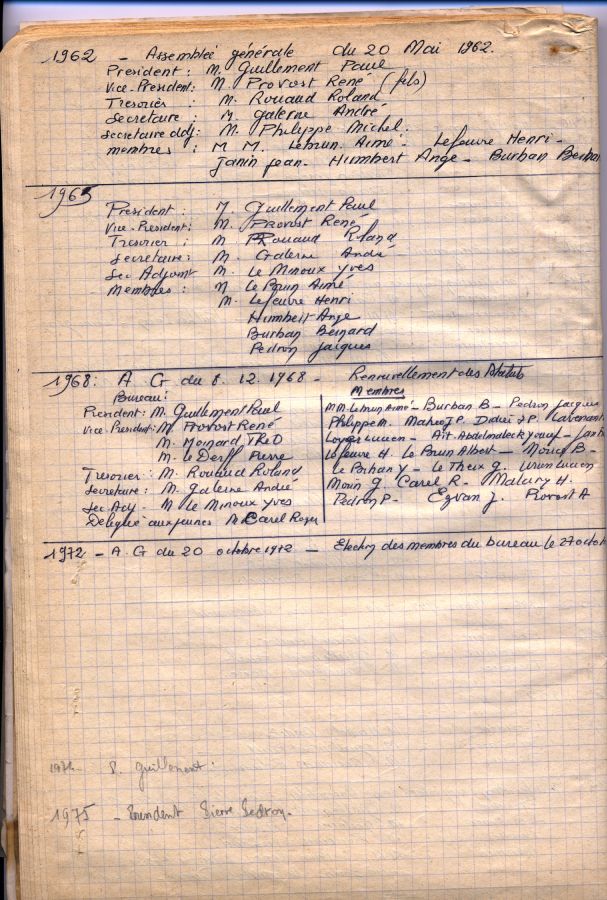 1962 - Assemblée générale du 20 Mai 1962.
President: M. Guillement Paul
Vice-President: M. Provost René (fils)
Tresorier : M. Rouaud Roland
Secretaire : M. Galerne André
Secretaire adj: M. Philippe Michel.
membres : M M. Lebrun Aimé - Lefeuvre Henri -
Janin jean - Humbert Ange - Burban
1965
President : M Guillement Paul
Vice-President: M. Provost René
Tresorier : M Rouaud Roland
Secretaire: M. Galerne André
Sec Adjoint M. Le Minoux Yves
Membres : M Le Brun Aimé
M. Lefeuvre Henri
Humbert Ange
Burban Bernard
Pedron Jacques
1968: A. G du 8. 12. 1968 - Renouvellement des Statuts
Bureau:
President: M. Guillement Paul
Vice-President: M Provost René
M. Moinard THEO
M. Le Derff Pierre
Tresorier: M. Rouaud Roland
Secretaire: M. Galerne André
Sec Adj - M Le Minoux Yves
Délégué aux jeunes M Carel Roger
Membres
MM. Lebrun Aimé - Burban B - Pedron Jacques
Philippe M. Maheo J P. Didier J P. Lavenant
Loyer Lucien - Aït Abdelmaleck Youcef -
Lefeuvre H. Le Brun Albert - Morice B -
Le Bohan Y - Le Theix G. Lucien
Morin G. Carel R - Malary H.
Pedron P - Ezvan J. Provost A
1972 - A. G du 20 octobre 1972 - Election des membres du bureau le 27
P. Guillement.
1975 - President Pierre Pedron.